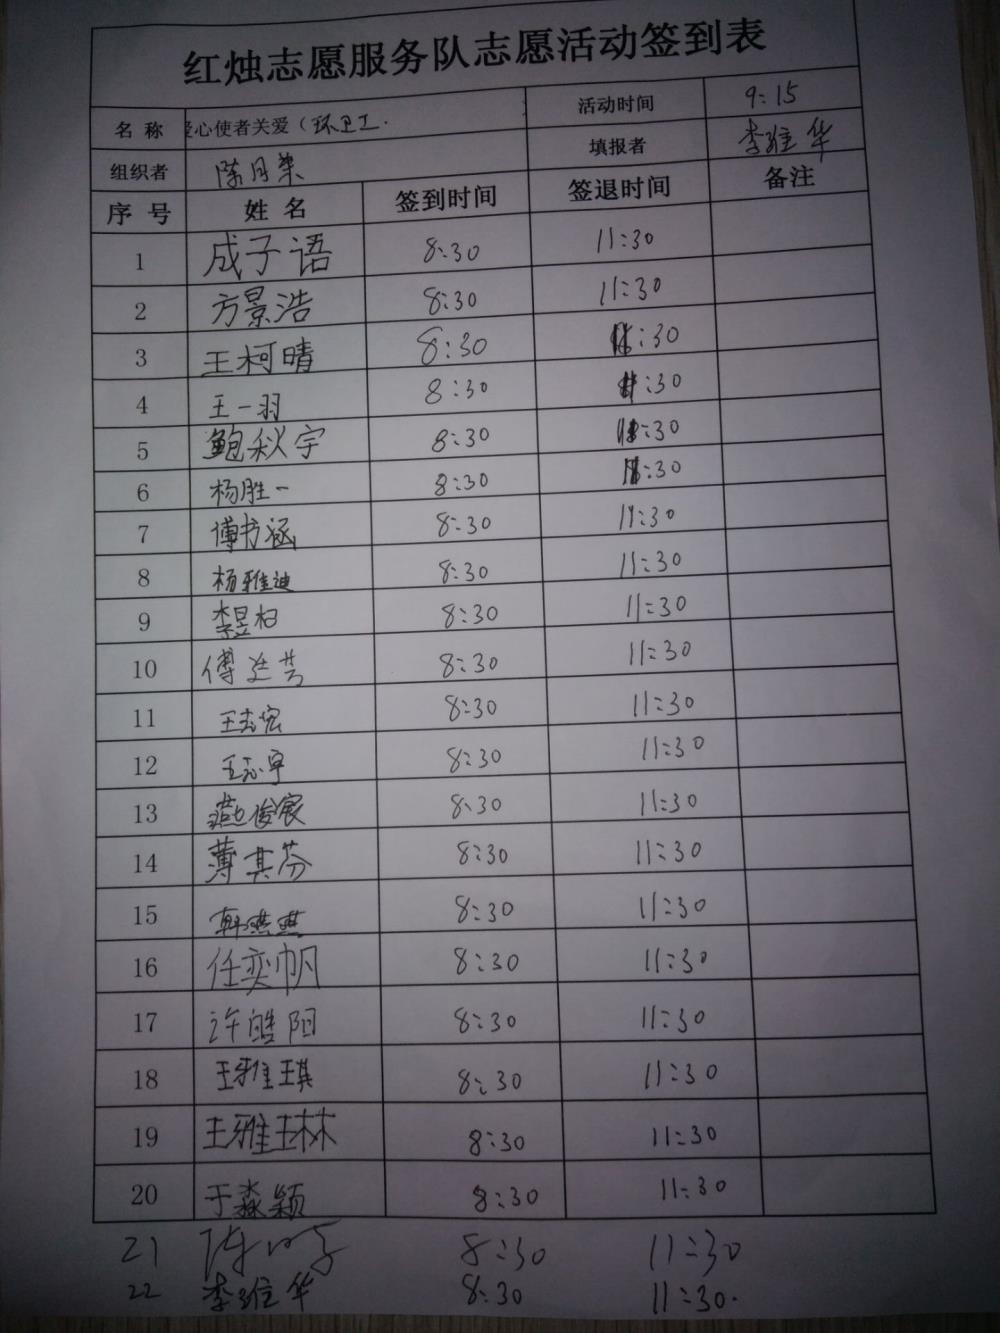 红烛志愿服务队志愿活动签到表
名 称 爱心使者关爱(环卫工. 活动时间 9:15
组织者 陈月荣 填报者 李维华
序 号 姓 名 签到时间 签退时间 备注
1 成子语 8:30 11:30
2 方景浩 8:30 11:30
3 王柯晴 8:30 11:30
4 王一羽 8:30 11:30
5 鲍秋宇 8:30 11:30
6 杨胜一 8:30 11:30
7 傅书涵 8:30 11:30
8 杨雅迪 8:30 11:30
9 李昱 8:30 11:30
10 傅廷芳 8:30 11:30
11 王志宏 8:30 11:30
12 王 宇 8:30 11:30
13 燕俊宸 8:30 11:30
14 薄其芬 8:30 11:30
15 韩 8:30 11:30
16 任奕帆 8:30 11:30
17 许皓阳 8:30 11:30
18 王雅琪 8:30 11:30
19 王雅琳 8:30 11:30
20 于淼颖 8:30 11:30
21 陈 8:30 11:30
22 李维华 8:30 11:30.